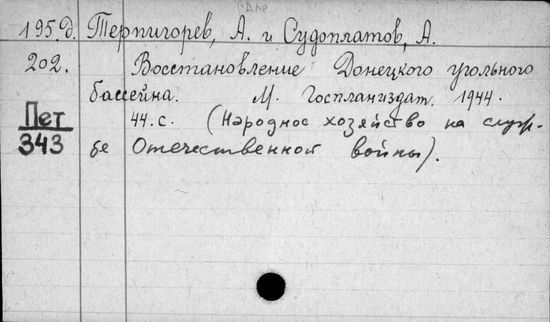 195.Д. Терпигорев, А. и Судоплатов, А.
202. Восстановление Донецкого угольного
бассейна. М. Госпланиздат. 1944.
Пет 44.с. (Народное хозяйство на служ-
343 бе Отечественной войны).